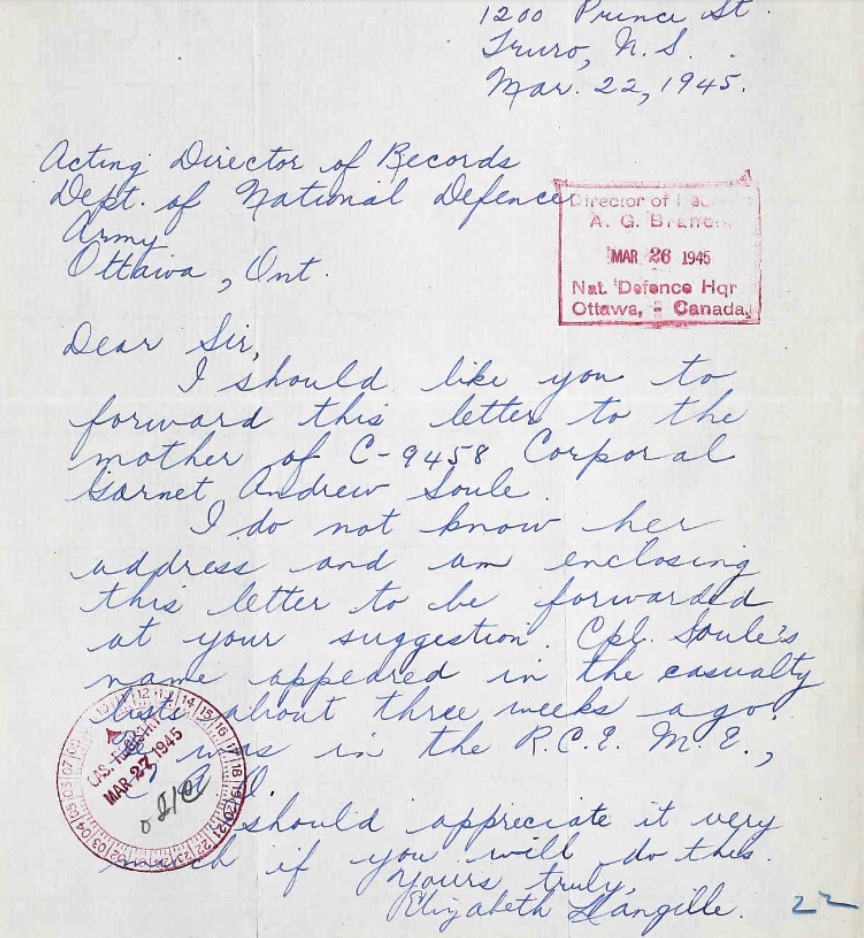 1200 Prince St.
Truro, N.S.
Mar. 22, 1945.
Acting Director of Records
Dept. of National Defence
Army
Ottawa, Ont.
Director of
A. G. Branch
MAR 26 1945
Nat. Defence Hqr
Ottawa, - Canada,
Dear Sir,
I should like you to
forward this letter to the
mother of C-9458 Corporal
Garnet Andrew Soule.
I do not know her
address and am enclosing
this letter to be forwarded
at your suggestion. Cpl. Soule's
name appeared in the casualty
lists about three weeks ago.
He was in the R.C.E.M.E.,
I should appreciate it very
much if you will do this.
Yours truly,
Elizabeth Langille.
22
CAS.
MAR 27 1945